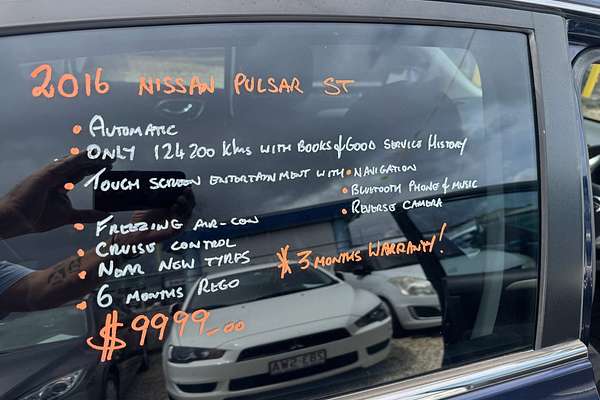 2016 NISSAN PULSAR ST
• AUTOMATIC
• ONLY 124200 Kms WITH BOOKS & GOOD SERVICE HISTORY
• TOUCH SCREEN ENTERTAINMENT WITH • NAVIGATION
• BLUETOOTH PHONE & MUSIC
• REVERSE CAMERA
• FREEZING AIR-CON
• CRUISE CONTROL
• NEAR NEW TYRES
* 3 MONTHS WARRANTY!
• 6 MONTHS REGO
$9999.00